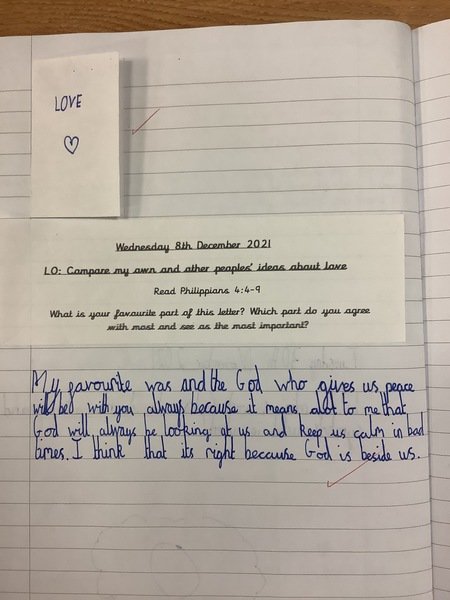 LOVE
Wednesday 8th December 2021
LO: Compare my own and other peoples' ideas about love
Read Philippians 4:4-9
What is your favourite part of this letter? Which part do you agree
with most and see as the most important?
My favourite was and the God who gives us peace
will be with you always because it means alot to me that
God will always be looking at us and keep us calm in bad
times. I think that its right because God is beside us.